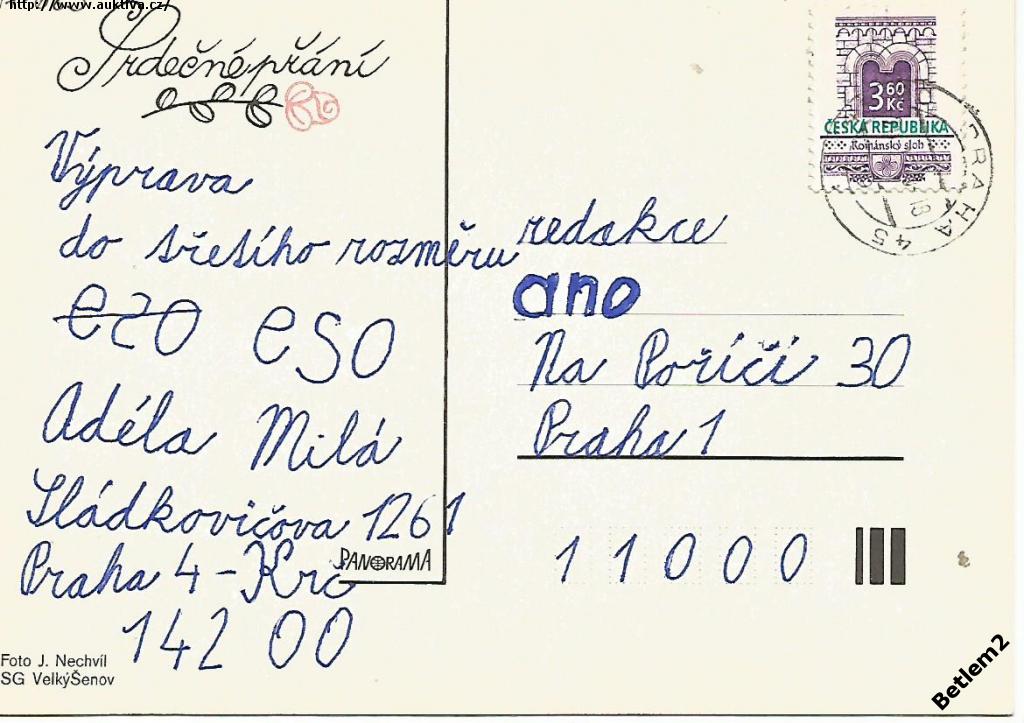 http://www.auktiva.cz/
Srdečné přání
Výprava
do třetího rozměru
ezo eso
Adéla Milá
Sládkovičova 1261
Praha 4 - Krč
142 00
PANORAMA
Foto J. Nechvíl
SG VelkýŠenov
3 60
Kč
ČESKÁ REPUBLIKA
Románský sloh
PRAHA 45
redakce
ano
Na Poříčí 30
Praha 1
11000
Betlem2